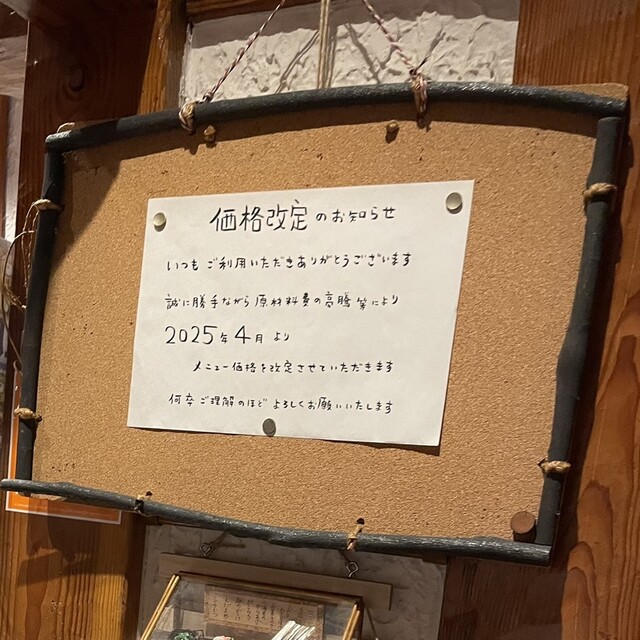 価格改定のお知らせ
いつもご利用いただきありがとうございます
誠に勝手ながら原材料費の高騰等により
2025年4月より
メニュー価格を改定させていただきます
何卒ご理解のほどよろしくお願いいたします